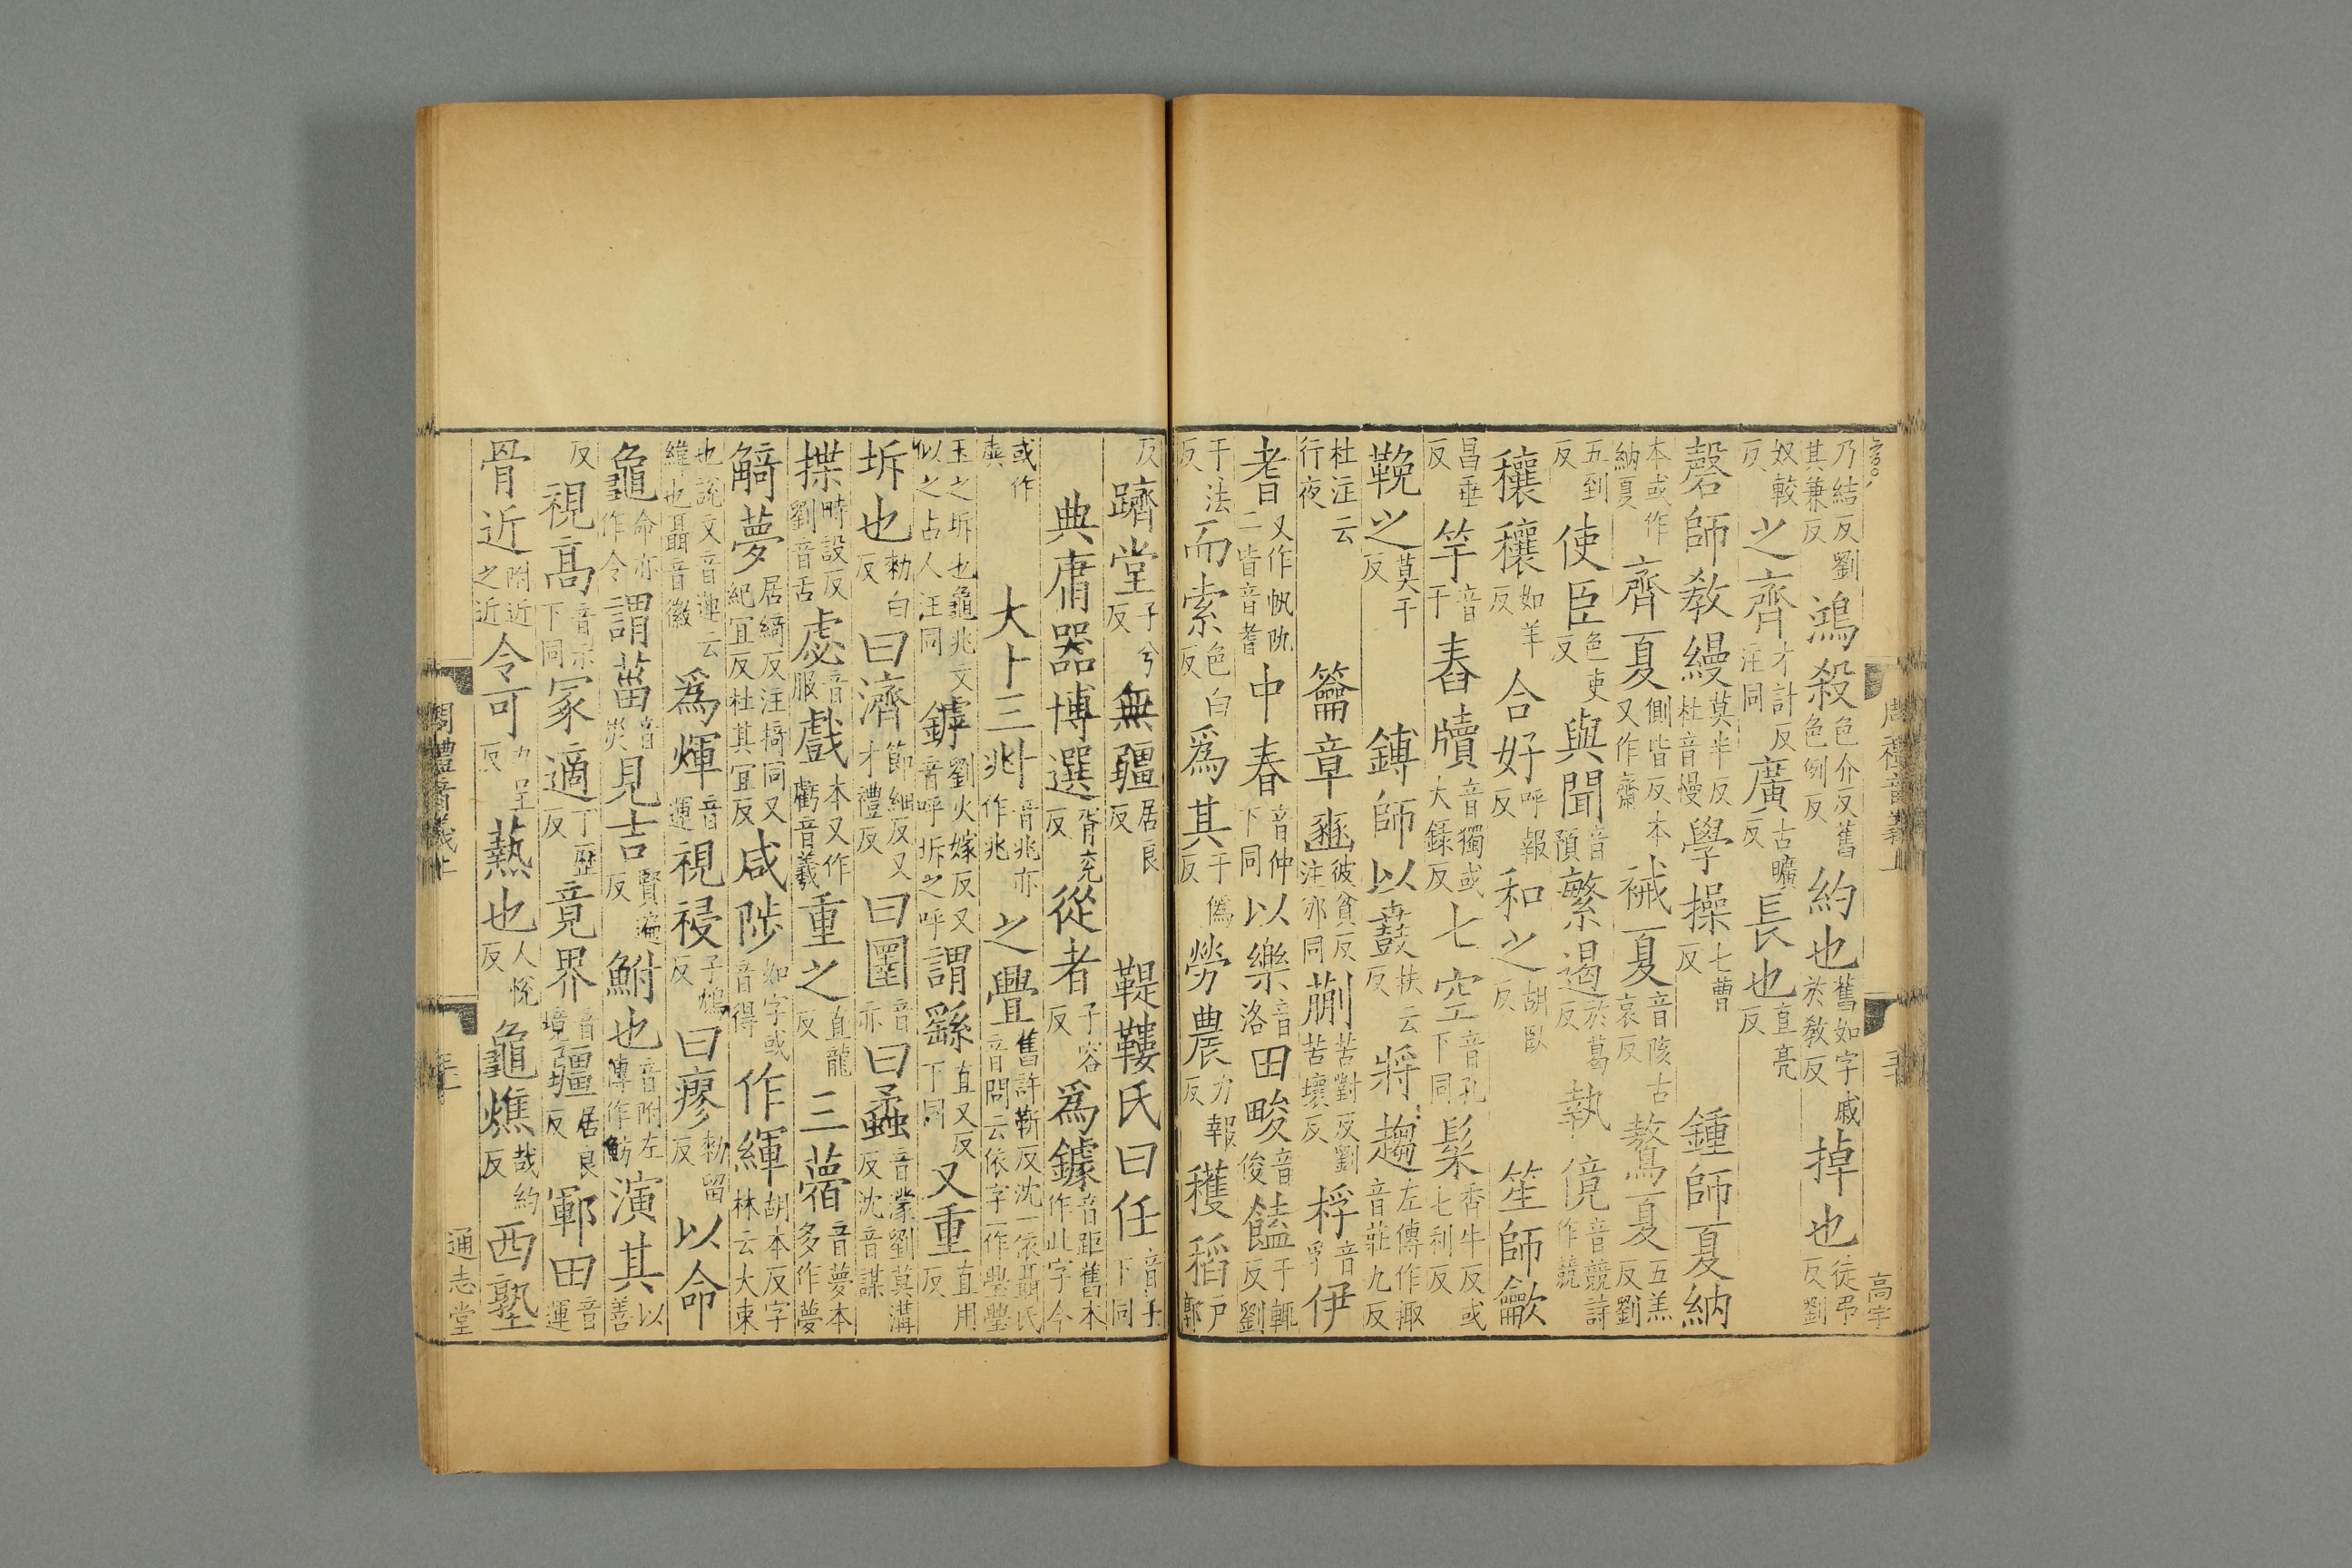 乃結反劉其兼反鴻殺色介反舊色例反約也舊如字戚於教反掉也徒弔反劉
奴較反之齊才計反注同廣古曠反長也直亮反
磬師教縵莫半反杜音慢學操七曹反鍾師夏納
本或作納夏齊夏側皆反本又作齋祴夏音陔古哀反驁夏五羔反劉
五到反使臣色吏反與聞音預繁遏於葛反執傹音競詩作競
穰穰如羊反合好呼報反和之胡臥反笙師龡
昌垂反竽音于舂牘音獨或大錄反七空音孔下同髹香牛反或七利反
鞔之莫干反鏄師以鼖扶云反將趨左傳作掫音莊九反
杜注云行夜籥章豳彼貧反注邠同蒯苦對反劉苦壞反桴音孚伊
耆又作帆阭二皆音耆中春音仲下同以樂音洛田畯音俊饁于輒反劉
于法反而索色白反爲其于僞反勞農力報反穫稻戶郭
反躋堂子兮反無疆居良反鞮鞻氏曰任音壬下同
典庸器博選胥兖反從者子容反爲鐻音距舊本作此字今
或作虡大卜三兆音兆亦作兆之舋舊許靳反沈依聶氏音問云依字作璺
玉之坼也龜兆文似之占人注同罅劉火嫁反又音呼坼之呼謂繇直又反下同又重直用反
坼也勑白反曰濟節細反又才禮反曰圛音亦曰蟊音蒙劉莫溝反沈音謀
揲時設反劉音舌虙音服戲本又作虧音羲重之直龍反三薔音夢本多作夢
觭夢居綺反注掎同又紀宜反杜其宜反咸陟如字或音得作緷胡本反字林云大束
也說文音運云緯也聶音徽爲煇音運視祲子鴆反曰瘳勑留反以命
龜命亦作令謂菑音烖見吉賢遍反鮒也音附左傳作魴演其以善
反視高音示下同冢適丁歷反竟界音境疆居良反鄆田音運
骨近附近之近令可力呈反爇也人悅反龜燋哉約反西塾
周禮音義上
高字
周禮音義上
通志堂